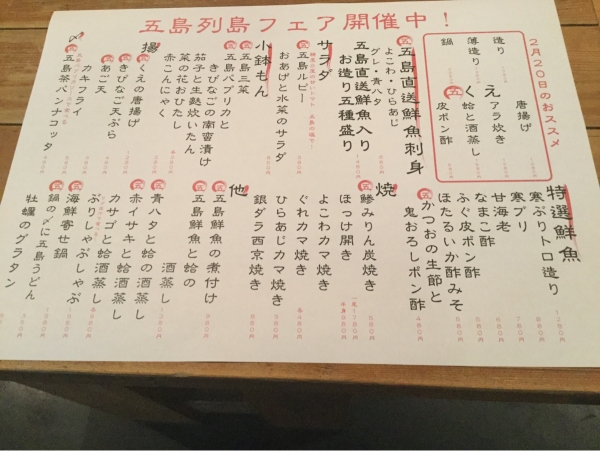 五島列島フェア開催中！
2月20日のおススメ
くえ
唐揚げ
アラ炊き
蛤と酒蒸し
皮ポン酢
造り
薄造り
鍋
五島直送鮮魚刺身
よこわ・ひらあじ
グレ・青ハタ
五島直送鮮魚入り
お造り五種盛り
サラダ
五島ルビー
おあげと水菜のサラダ
小鉢もん
五島三菜
五島パプリカと
きびなごの南蛮漬け
茄子と生麩炊いたん
菜の花おひたし
赤こんにゃく
揚
くえの唐揚げ
きびなごの天ぷら
あご天
カキフライ
〆
五島茶パンナコッタ
特選鮮魚
寒ぶりトロ造り
寒ブリ
甘海老
なまこ酢
ふぐ皮ポン酢
ほたるいか酢みそ
かつおの生節と
鬼おろしポン酢
焼
鯵みりん炭焼き
ほっけ開き
よこわカマ焼き
ぐれカマ焼き
ひらあじカマ焼き
銀ダラ西京焼き
他
五島鮮魚の煮付け
五島鮮魚と蛤の
酒蒸し
青ハタと蛤の酒蒸し
赤イサキと蛤酒蒸し
カサゴと蛤酒蒸し
ぶりしゃぶしゃぶ
海鮮寄せ鍋
鍋の〆に五島うどん
牡蠣のグラタン